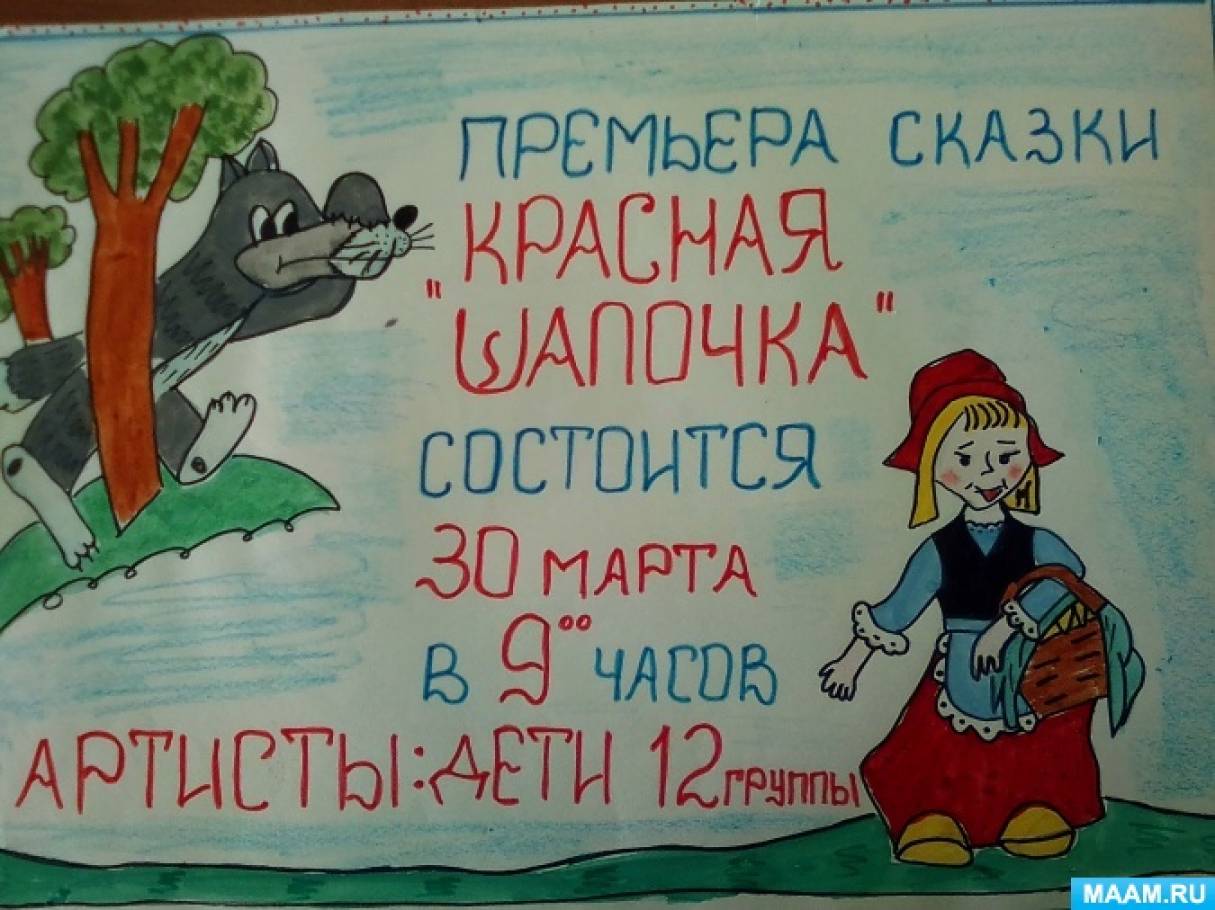 ПРЕМЬЕРА СКАЗКИ
"КРАСНАЯ
ШАПОЧКА"
СОСТОИТСЯ
30 МАРТА
В 9°° ЧАСОВ
АРТИСТЫ: ДЕТИ 12 ГРУППЫ
MAAM.RU